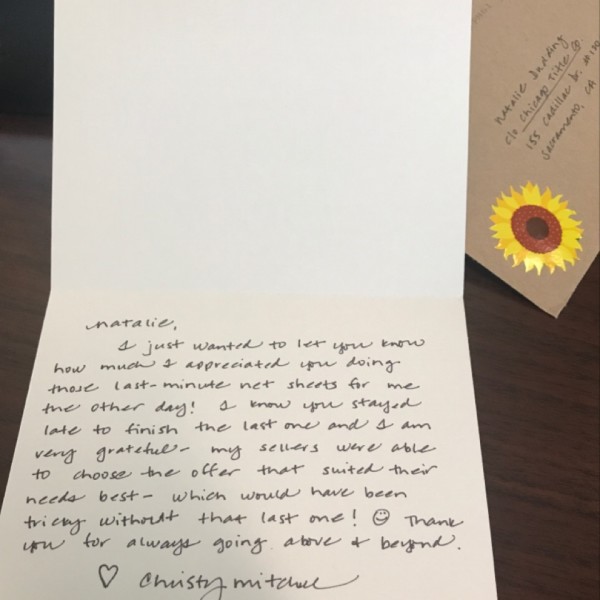 Natalie Dudding
c/o Chicago Title Co.
155 Cadillac Dr.
Sacramento, CA
natalie,
I just wanted to let you know
how much I appreciated you doing
those last-minute net sheets for me
the other day! I know you stayed
late to finish the last one and I am
very grateful- my sellers were able
to choose the offer that suited their
needs best- which would have been
tricky without that last one! ☺ Thank
you for always going above & beyond.
♡ Christy Mitchell